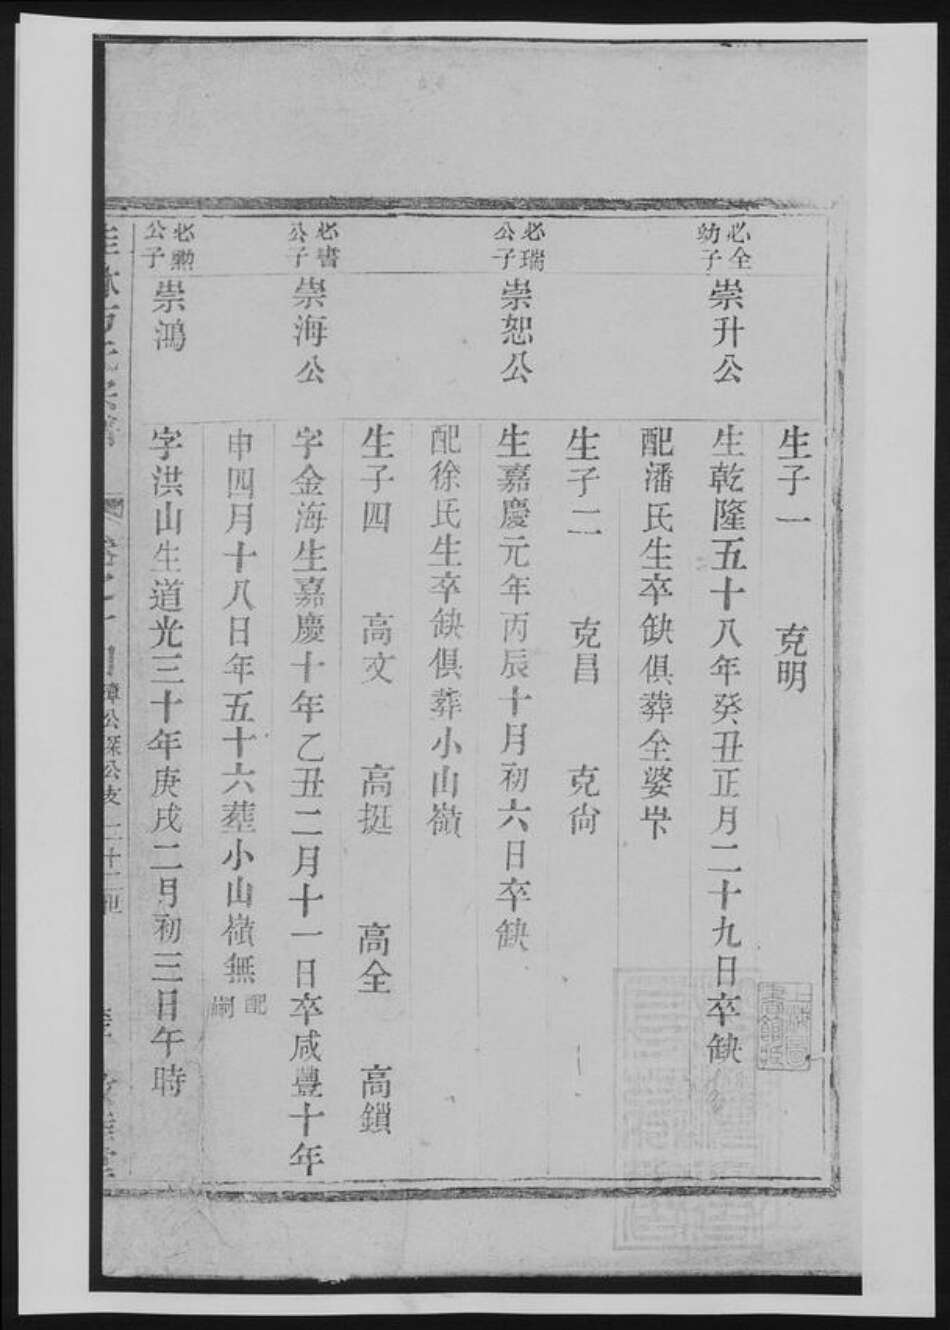 生子一 克明
必全
幼子
崇升公
生乾隆五十八年癸丑正月二十九日卒缺
配潘氏生卒缺俱葬全婆岕
生子二 克昌 克尙
必瑞
公子
崇恕公
生嘉慶元年丙辰十月初六日卒缺
配徐氏生卒缺俱葬小山嶺
生子四 高文 高挺 高全 高鎖
必書
公子
崇海公
字金海生嘉慶十年乙丑二月十一日卒咸豐十年
申四月十八日年五十六塟小山嶺無
配
嗣
必勲
公子
崇鴻
字洪山生道光三十年庚戌二月初三日午時